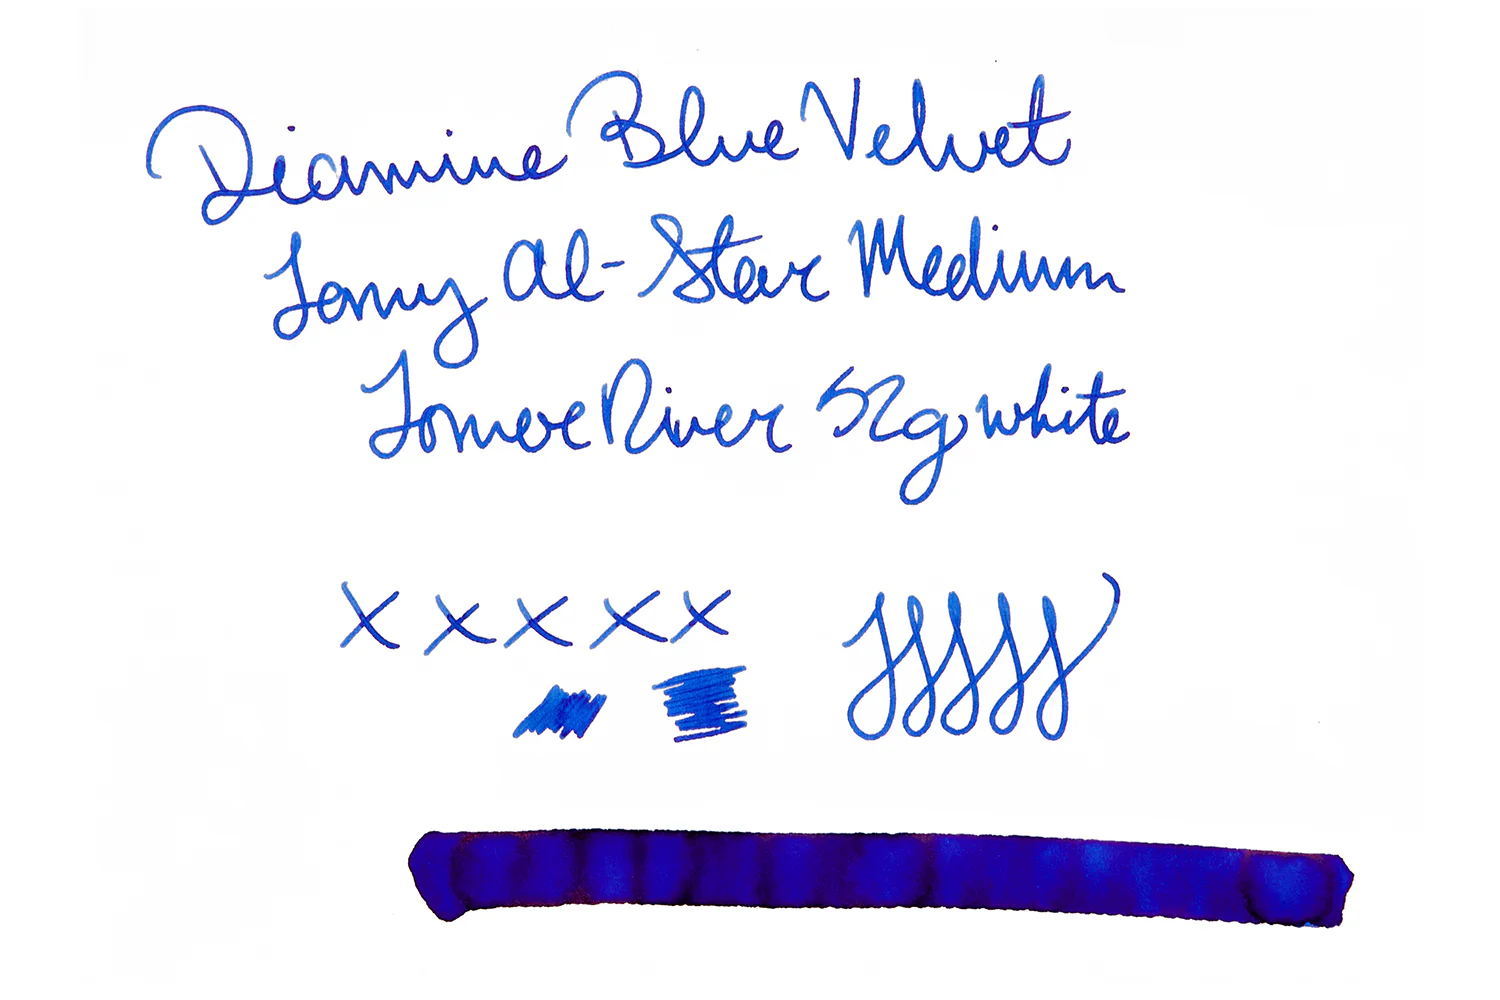 Diamine Blue Velvet
Lamy al-Star Medium
Tomoe River 52g white
x x x x x